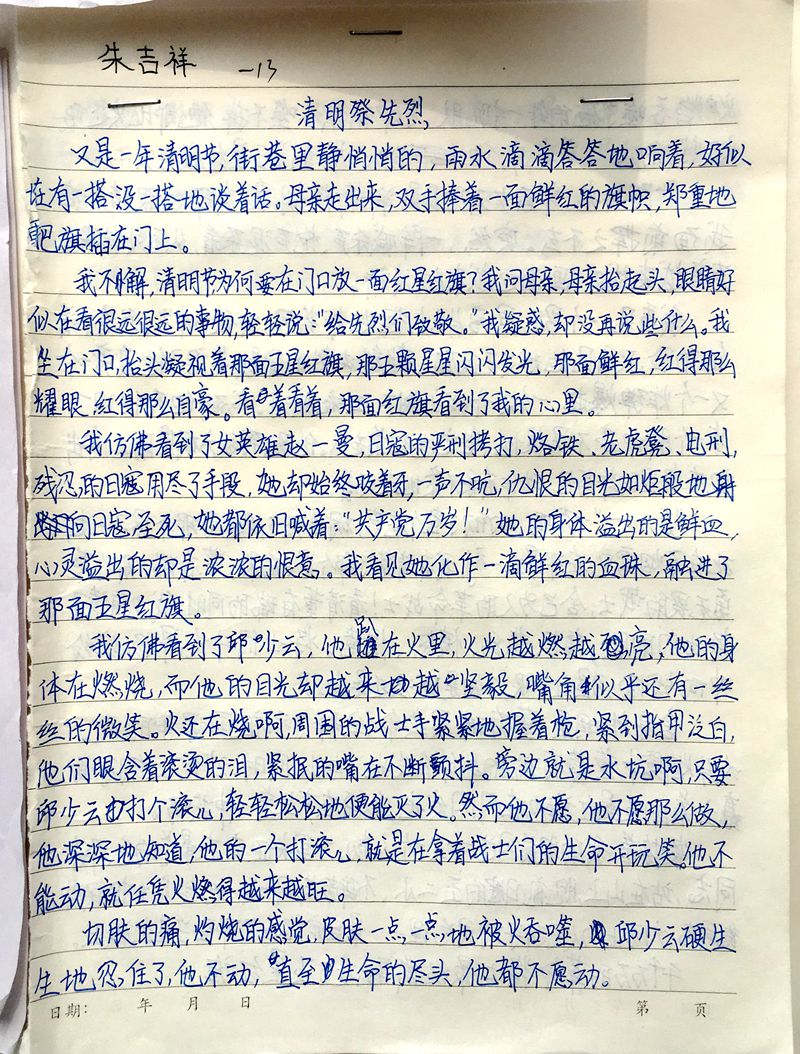 朱吉祥 -13
清明祭先烈
又是一年清明节,街巷里静悄悄的,雨水滴滴答答地响着,好似
在有一搭没一搭地谈着话。母亲走出来,双手捧着一面鲜红的旗帜,郑重地
把旗插在门上。
我不解,清明节为何要在门口放一面红星红旗?我问母亲,母亲抬起头,眼睛好
似在看很远很远的事物,轻轻说:“给先烈们致敬。”我疑惑,却没再说些什么。我
坐在门口,抬头凝视着那面五星红旗,那五颗星星闪闪发光,那面鲜红,红得那么
耀眼,红得那么自豪。看着看着,那面红旗看到了我的心里。
我仿佛看到了女英雄赵一曼,日寇的严刑拷打,烙铁、老虎凳、电刑,
残忍的日寇用尽了手段,她却始终咬着牙,一声不吭,仇恨的目光如炬般地射
向日寇至死,她都依旧喊着:“共产党万岁!”她的身体溢出的是鲜血,
心灵溢出的却是浓浓的恨意。我看见她化作一滴鲜红的血珠,融进了
那面五星红旗。
我仿佛看到了邱少云,他趴在火里,火光越燃越亮,他的身
体在燃烧,而他的目光却越来越坚毅,嘴角似乎还有一丝
丝的微笑。火还在烧啊,周围的战士手紧紧地握着枪,紧到指甲泛白,
他们眼含着滚烫的泪,紧抿的嘴在不断颤抖。旁边就是水坑啊,只要
邱少云打个滚儿,轻轻松松地便能灭了火。然而他不愿,他不愿那么做,
他深深地知道,他的一个打滚儿,就是在拿着战士们的生命开玩笑。他不
能动,就任凭火燃得越来越旺。
切肤的痛,灼烧的感觉,皮肤一点一点地被火吞噬,邱少云硬生
生地忍住了,他不动,直至生命的尽头,他都不愿动。
日期: 年 月 日 第 页